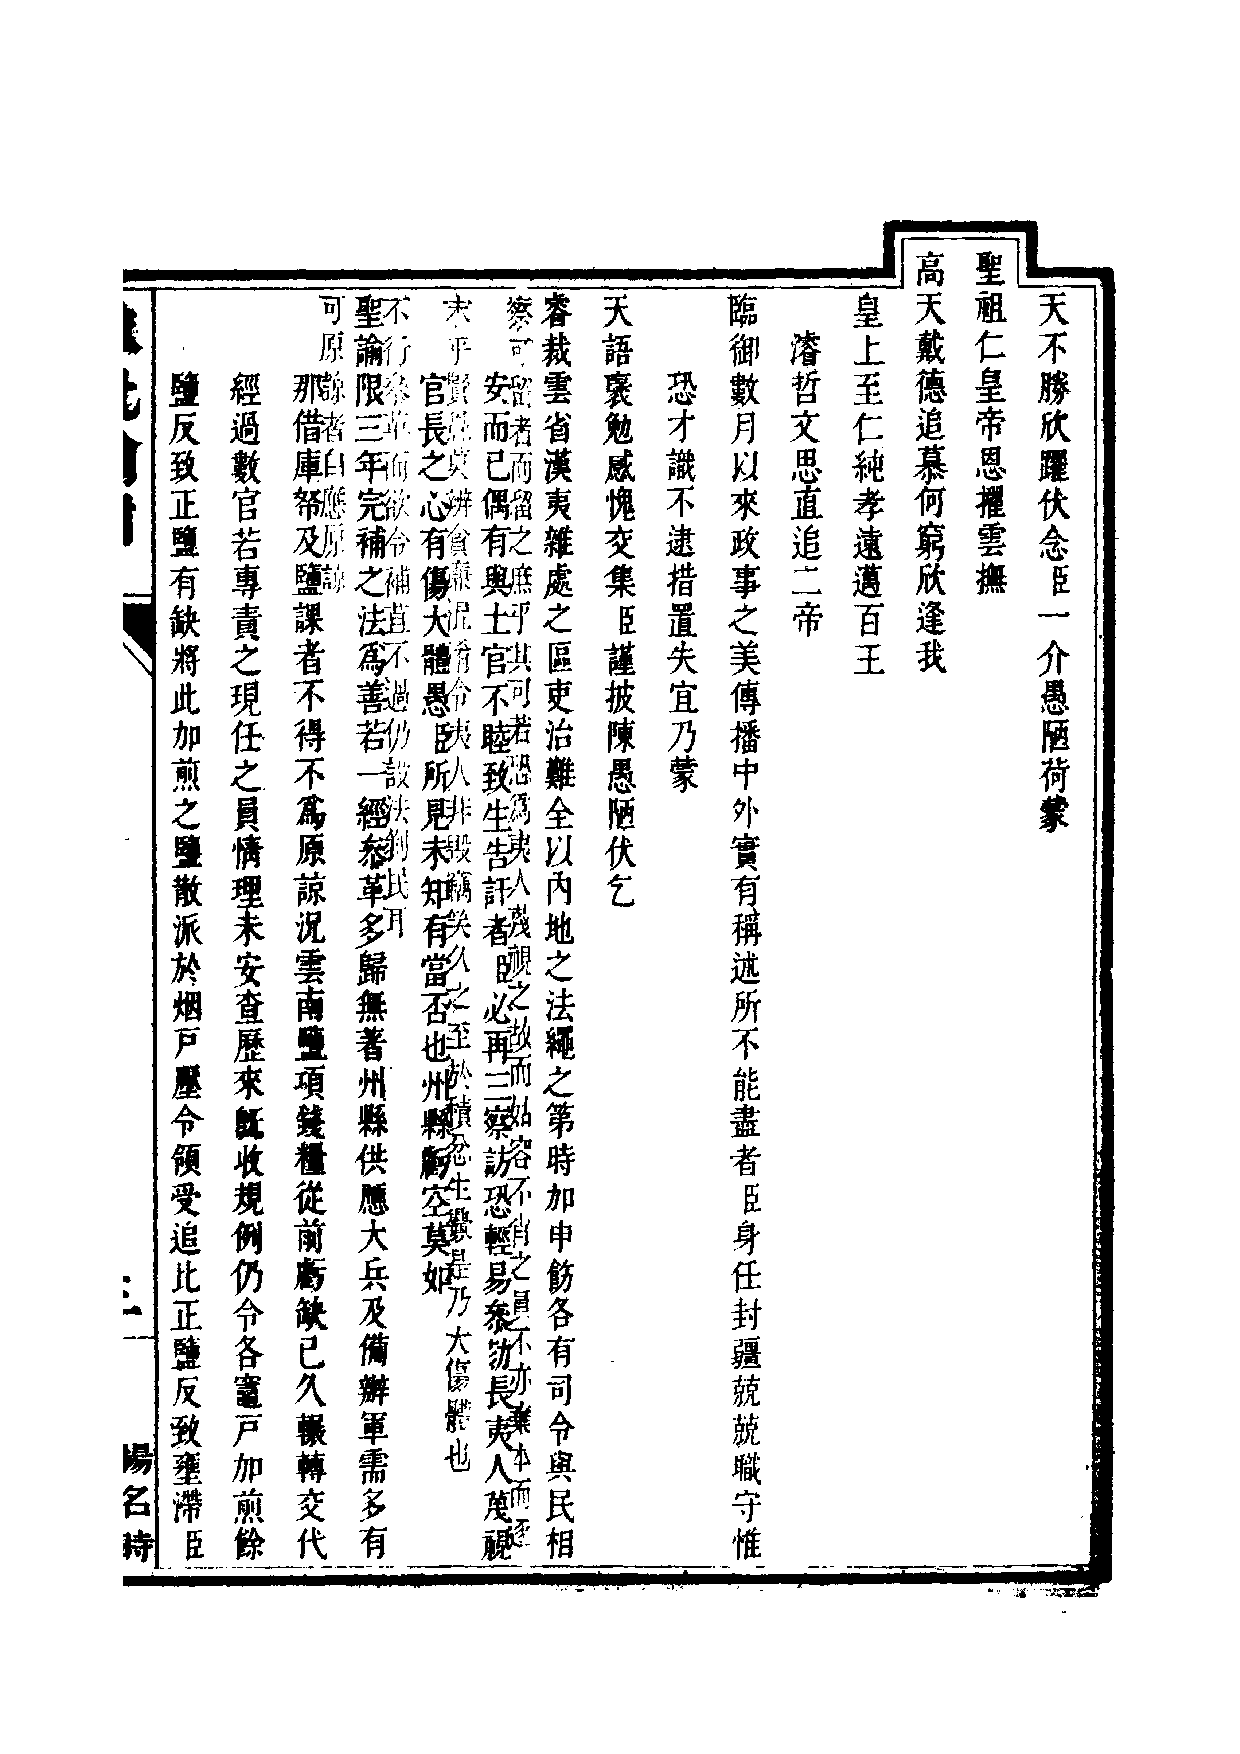 天不勝欣躍伏念臣一介愚陋荷蒙
聖祖仁皇帝恩擢雲撫
高天戴德追慕何窮欣逢我
皇上至仁純孝遠邁百王
濬哲文思直追二帝
臨御數月以來政事之美傳播中外實有稱述所不能盡者臣身任封疆兢兢職守惟
恐才識不逮措置失宜乃蒙
天語褒勉感愧交集臣謹披陳愚陋伏乞
睿裁雲省漢夷雜處之區吏治難全以內地之法繩之第時加申飭各有司令與民相
察可留者而留之庶乎其可若恐為夷人蔑視之故而姑容不肖之員不亦棄本而逐
安而已偶有與土官不睦致生告訐者臣必再三察訪恐輕易叅劾長夷人蔑視
末乎賢愚莫辨貪廉混淆令夷人非毀竊笑久之至於積忿生釁是乃大傷體也
官長之心有傷大體愚臣所見未知有當否也州縣虧空莫如
不行叅革而欲令補直不過仍設法剝民耳
聖諭限三年完補之法為善若一經叅革多歸無著州縣供應大兵及備辦軍需多有
可原諒者自應原諒
那借庫帑及鹽課者不得不為原諒況雲南鹽項錢糧從前虧缺已久輾轉交代
經過數官若專責之現任之員情理未安查歷來旣收規例仍令各竈戶加煎餘
鹽反致正鹽有缺將此加煎之鹽散派於烟戶壓令領受追比正鹽反致壅滯臣
楊名時